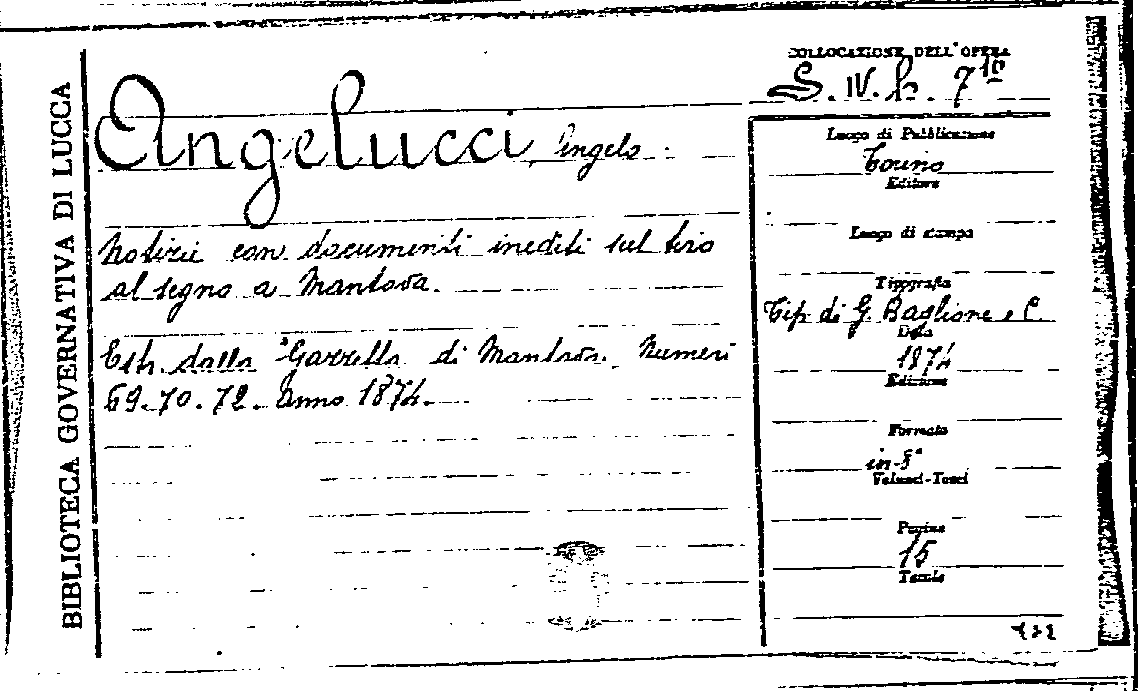 BIBLIOTECA GOVERNATIVA DI LUCCA
COLLOCAZIONE DELL'OPERA
S. IV. b. 7 10
Angelucci Angelo.
Notizie con documenti inediti sul tiro
al segno a Mantova.
Estr. dalla "Gazzetta di Mantova. Numeri
69-70-72. Anno 1874.
Luogo di Pubblicazione
Torino
Editore
Luogo di stampa
Tipografia
Tip. di G. Baglione e C.
Data
1874
Edizione
Formato
in-8°
Volumi-Tomi
Pagine
15
Tavole